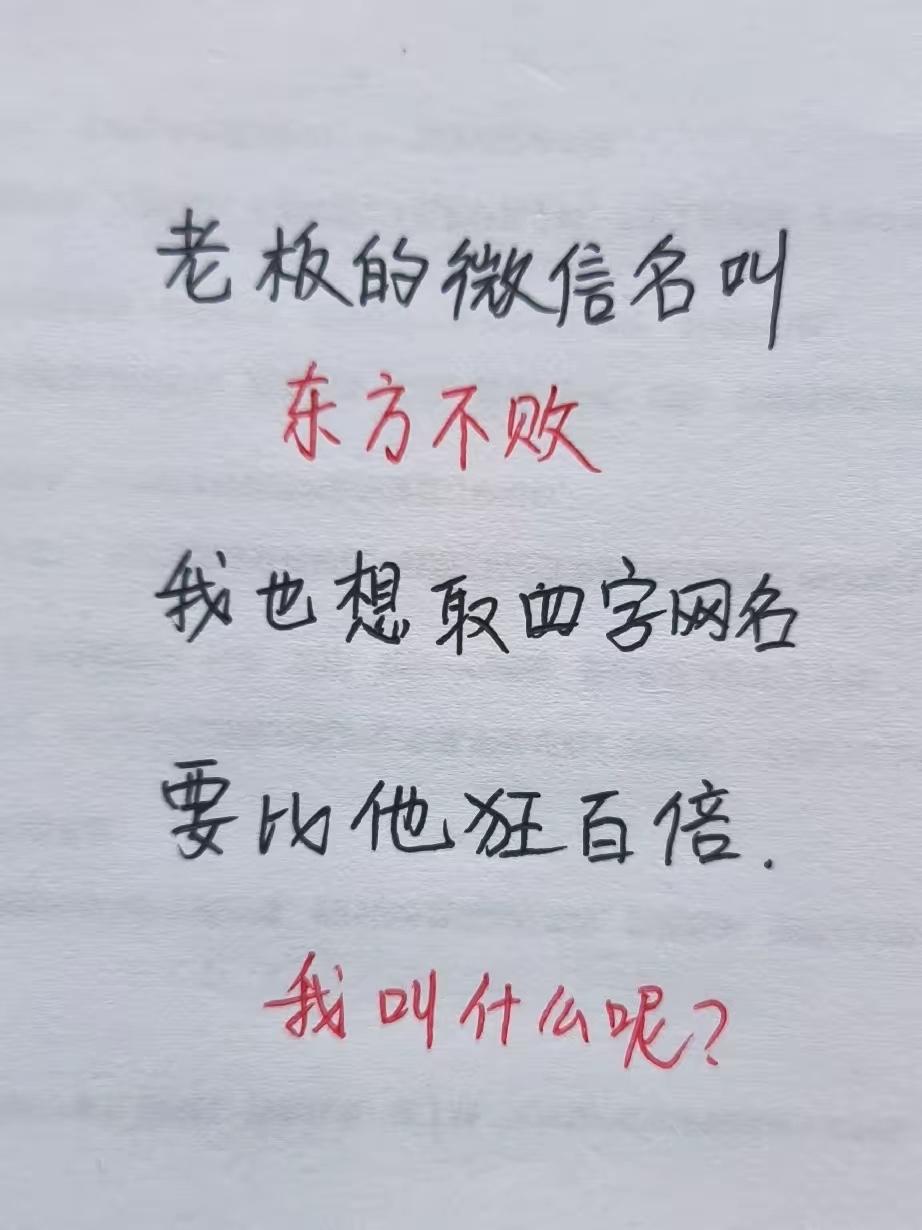 老板的微信名叫
东方不败
我也想取四字网名
要比他狂百倍.
我叫什么呢?